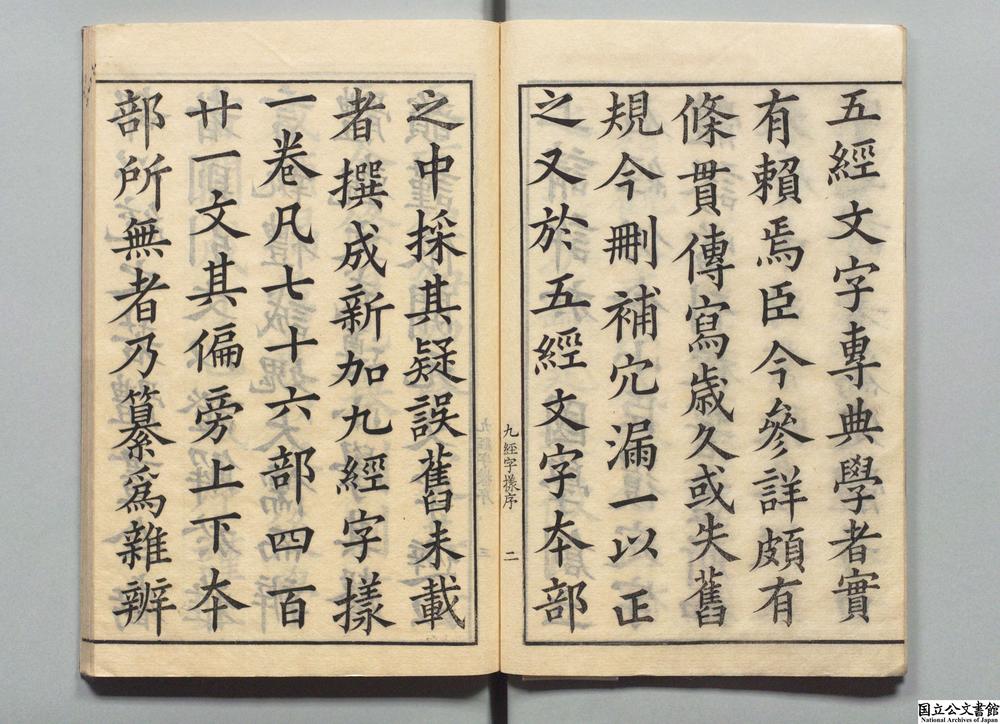 五經文字專典學者實
有賴焉臣今參詳頗有
條貫傳寫歲久或失舊
規今刪補宂漏一以正
之又於五經文字夲部
九經字樣序
二
之中採其疑誤舊未載
者撰成新加九經字樣
一卷凡七十六部四百
廿一文其偏旁上下夲
部所無者乃纂爲雜辨
国立公文書館
National Archives of Japan